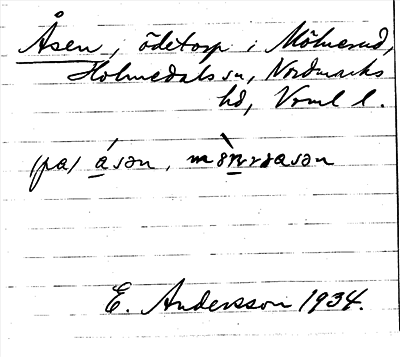 Åsen, ödetorp i Mölnerud,
Holmedals sn, Nordmarks
hd, Vrml l.
(pa) åsən,
E. Andersson 1934.